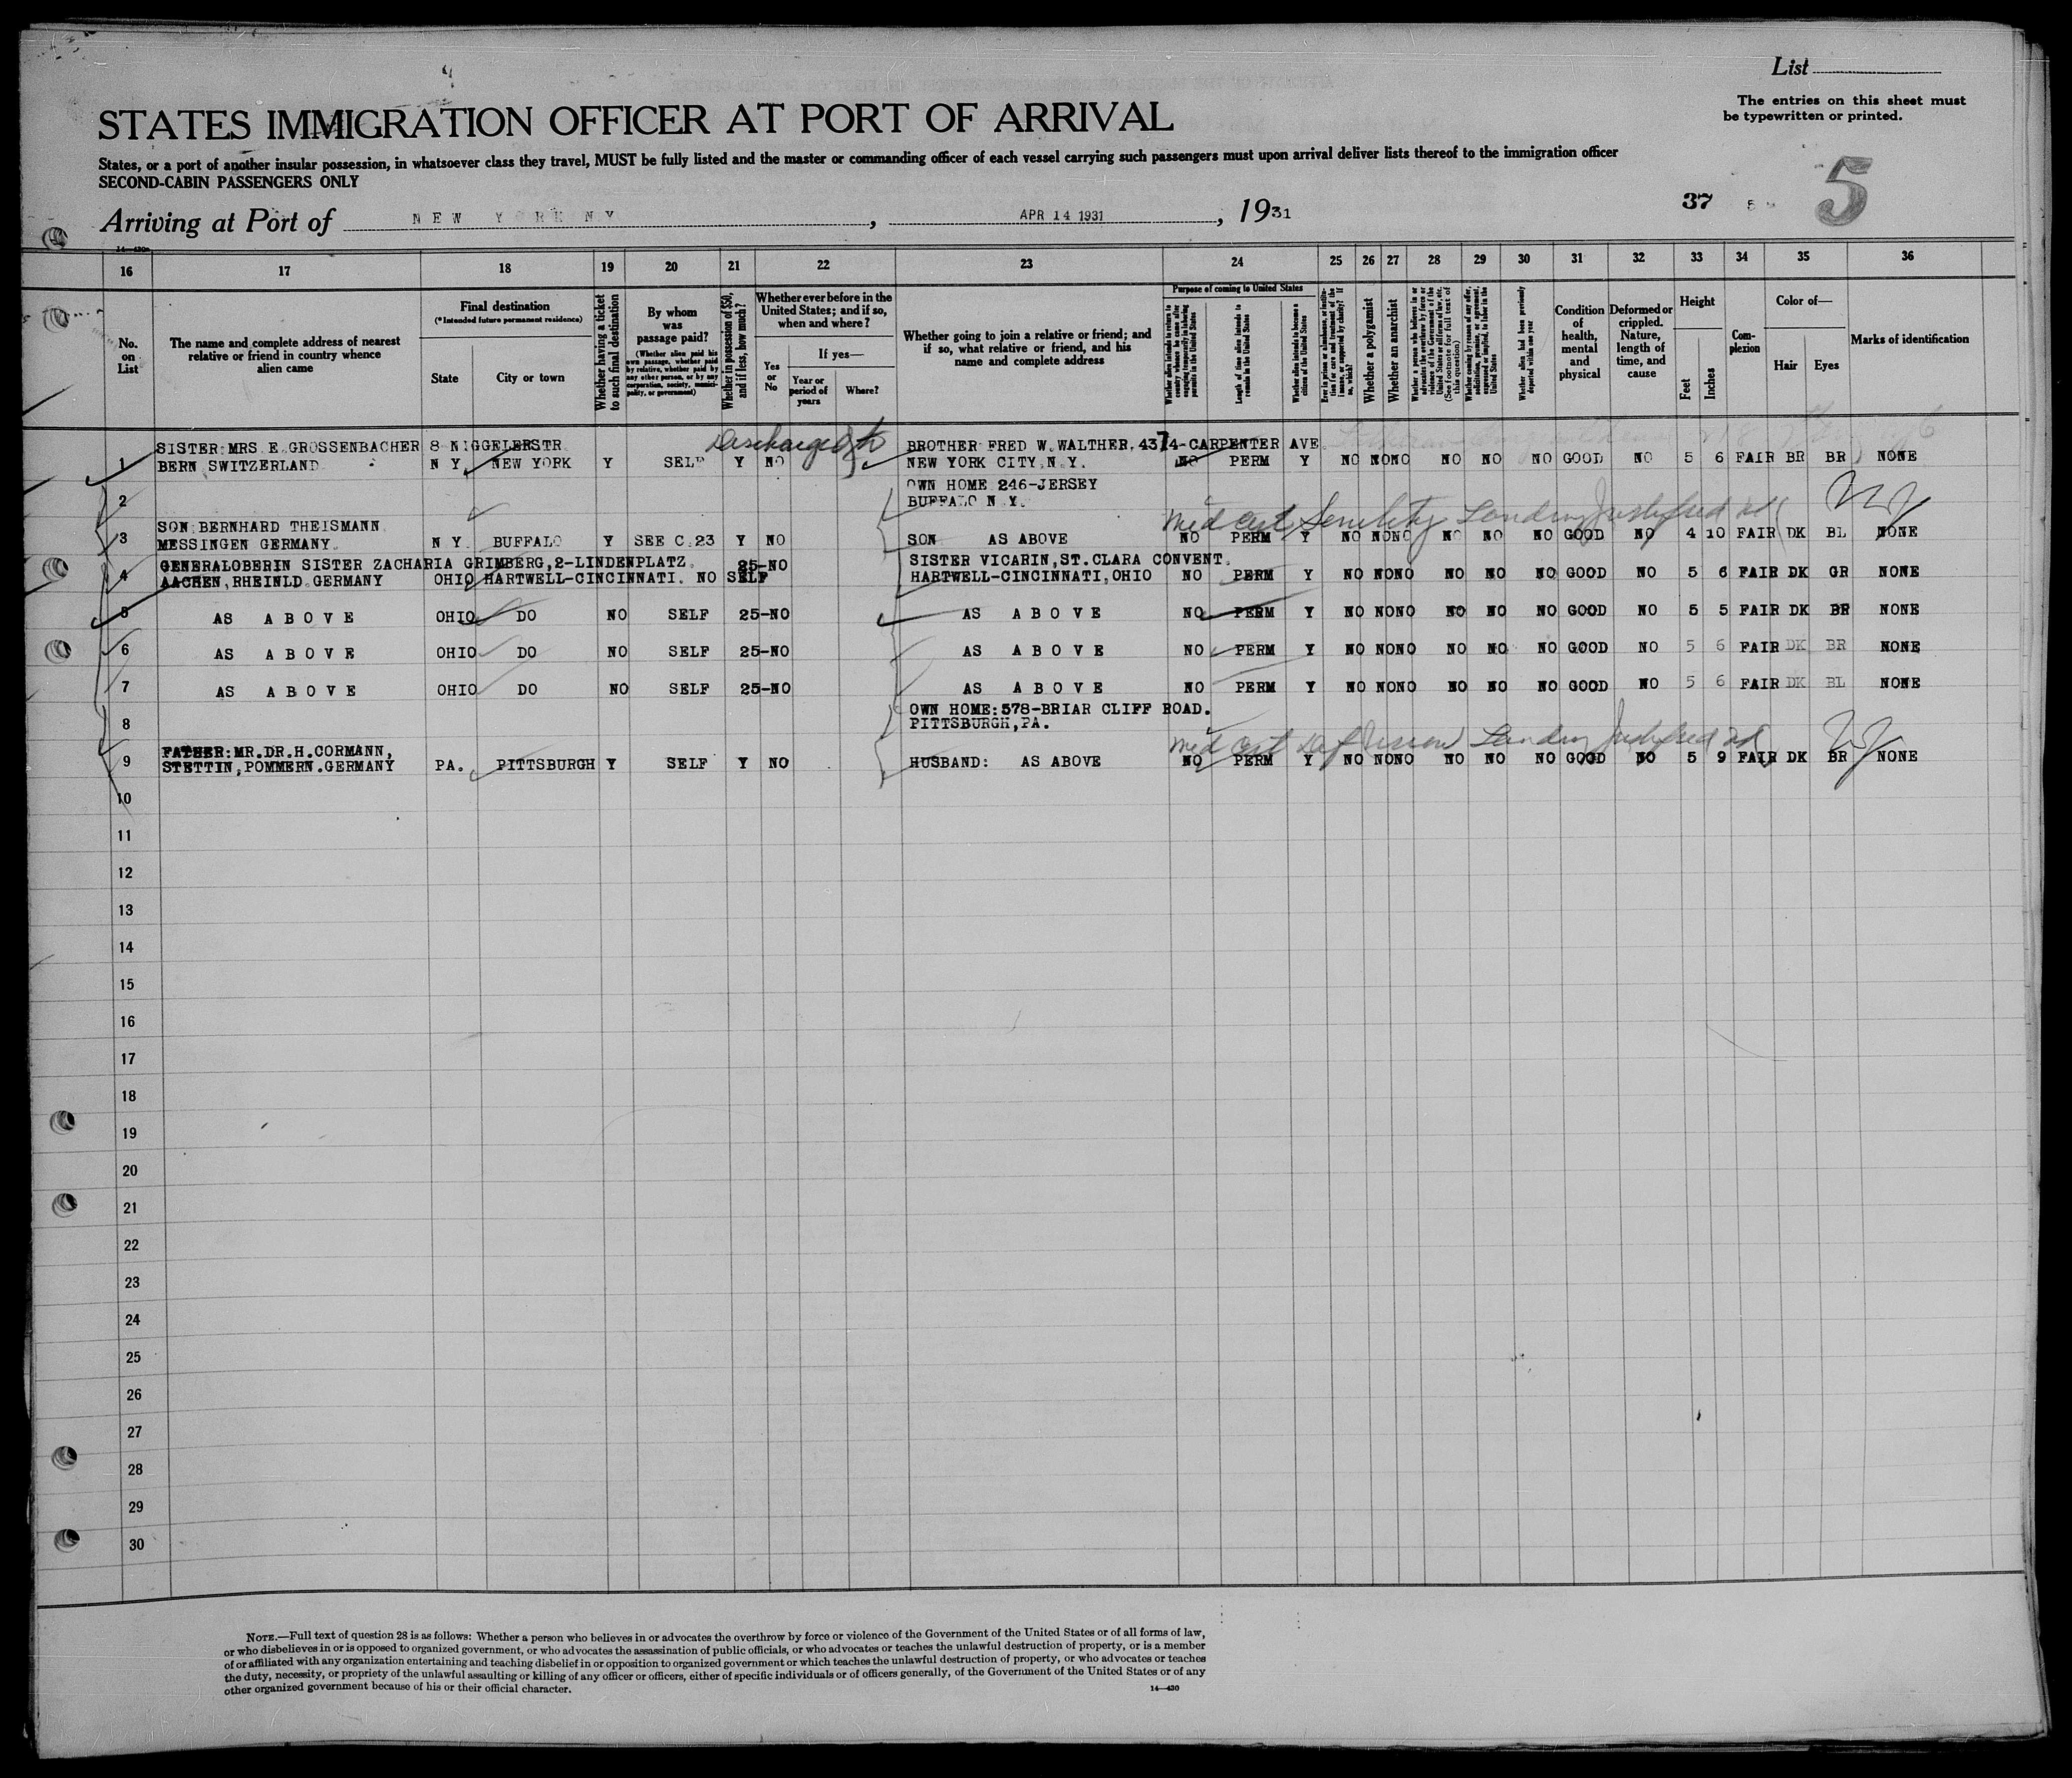 List
The entries on this sheet must
be typewritten or printed.
STATES IMMIGRATION OFFICER AT PORT OF ARRIVAL
States, or a port of another insular possession, in whatsoever class they travel, MUST be fully listed and the master or commanding officer of each vessel carrying such passengers must upon arrival deliver lists thereof to the immigration officer
SECOND-CABIN PASSENGERS ONLY
Arriving at Port of NEW YORK NY, APR 14 1931, 1931
37 5
16 17 18 19 20 21 22 23 24 25 26 27 28 29 30 31 32 33 34 35 36
No. on List
The name and complete address of nearest relative or friend in country whence alien came
Final destination
(*Intended future permanent residence)
State
City or town
Whether having a ticket to such final destination
By whom was passage paid?
(Whether alien paid his own passage, whether paid by relative, whether paid by any other person, or by any corporation, society, municipality, or government)
Whether in possession of $50, and if less, how much?
Whether ever before in the United States; and if so, when and where?
Yes or No
If yes—
Year or period of years
Where?
Whether going to join a relative or friend; and if so, what relative or friend, and his name and complete address
Purpose of coming to United States
Length of time alien intends to remain in the United States
Whether alien intends to become a citizen of the United States
Whether a polygamist
Whether an anarchist
Whether alien had been previously deported within one year
Condition of health, mental and physical
Deformed or crippled. Nature, length of time, and cause
Height
Feet
Inches
Complexion
Color of—
Hair
Eyes
Marks of identification
Discharged
SISTER: MRS E. GROSSENBACHER 8 NIGGELERSTR BROTHER FRED W. WALTHER. 4374-CARPENTER AVE
1 BERN SWITZERLAND N Y NEW YORK Y SELF Y NO NEW YORK CITY N.Y. NO PERM Y NO NO NO NO NO NO GOOD NO 5 6 FAIR BR BR NONE
OWN HOME 246-JERSEY
2 BUFFALO N Y.
Med Cert Senility Landing Justified
SON: BERNHARD THEISMANN
3 MESSINGEN GERMANY. N Y. BUFFALO Y SEE C.23 Y NO SON AS ABOVE NO PERM Y NO NO NO NO NO NO GOOD NO 4 10 FAIR DK BL NONE
GENERALOBERIN SISTER ZACHARIA GRIMBERG, 2-LINDENPLATZ. 25-NO SISTER VICARIN, ST. CLARA CONVENT.
4 AACHEN, RHEINLD GERMANY OHIO HARTWELL-CINCINNATI. NO SELF HARTWELL-CINCINNATI, OHIO NO PERM Y NO NO NO NO NO NO GOOD NO 5 6 FAIR DK GR NONE
5 AS ABOVE OHIO DO NO SELF 25-NO AS ABOVE NO PERM Y NO NO NO NO NO NO GOOD NO 5 5 FAIR DK BR NONE
6 AS ABOVE OHIO DO NO SELF 25-NO AS ABOVE NO PERM Y NO NO NO NO NO NO GOOD NO 5 6 FAIR DK BR NONE
7 AS ABOVE OHIO DO NO SELF 25-NO AS ABOVE NO PERM Y NO NO NO NO NO NO GOOD NO 5 6 FAIR DK BL NONE
OWN HOME: 578-BRIAR CLIFF ROAD.
8 PITTSBURGH, PA.
Med Cert Def Vision Landing Justified
FATHER: MR. DR. H. CORMANN,
9 STETTIN, POMMERN. GERMANY PA. PITTSBURGH Y SELF Y NO HUSBAND: AS ABOVE NO PERM Y NO NO NO NO NO NO GOOD NO 5 9 FAIR DK BR NONE
10
11
12
13
14
15
16
17
18
19
20
21
22
23
24
25
26
27
28
29
30
NOTE.—Full text of question 28 is as follows: Whether a person who believes in or advocates the overthrow by force or violence of the Government of the United States or of all forms of law,
or who disbelieves in or is opposed to organized government, or who advocates the assassination of public officials, or who advocates or teaches the unlawful destruction of property, or is a member
of or affiliated with any organization entertaining and teaching disbelief in or opposition to organized government or which teaches the unlawful destruction of property, or who advocates or teaches
the duty, necessity, or propriety of the unlawful assaulting or killing of any officer or officers, either of specific individuals or of officers generally, of the Government of the United States or of any
other organized government because of his or their official character.
14—430